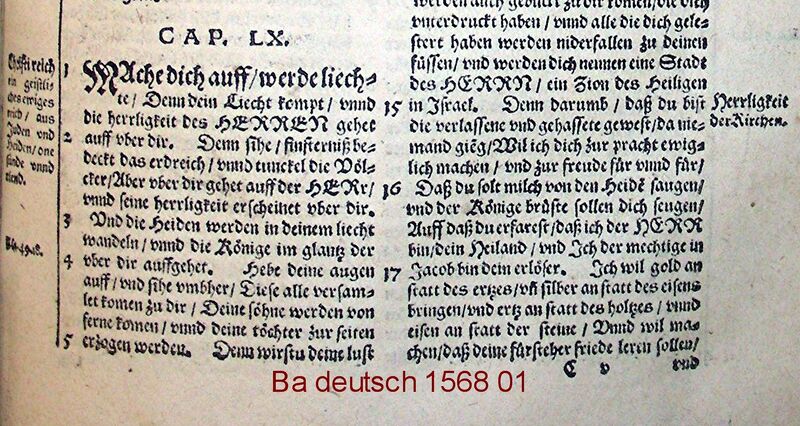 CAP. LX.
1 MAche dich auff/werde liech-
te/ Denn dein Liecht kompt/ vnnd
die herrligkeit des HERREN gehet
2 auff vber dir. Denn sihe/ finsterniß be-
deckt das erdreich/ vnnd tunckel die Völ-
cker/Aber vber dir gehet auff der HERr/
vnnd seine herrligkeit erscheinet vber dir.
3 Vnd die Heiden werden in deinem liecht
wandeln/ vnnd die Könige im glantz der
4 vber dir auffgehet. Hebe deine augen
auff/ vnd sihe vmbher/ Diese alle versam-
let komen zu dir/ Deine söhne werden von
ferne komen/ vnnd deine töchter zur seiten
5 erzogen werden. Denn wirstu deine lust
reich
geistli-
ches ewiges
reich/ aus
Jüden vnd
Heiden/ one
sünde vnnd
werden auch gebückt zu dir komen/ die dich
vnterdruckt haben/ vnnd alle die dich gele-
stert haben werden niderfallen zu deinen
füssen/ vnd werden dich nennen eine Stadt
des HERRN/ ein Zion des Heiligen
15 in Israel. Denn darumb/ daß du bist
die verlassene vnd gehassete gewest/da nie-
mand gieng/ Wil ich dich zur pracht ewig-
lich machen/ vnd zur freude für vnnd für/
16 Daß du solt milch von den Heidē saugen/
vnd der Könige brüste sollen dich seugen/
Auff daß du erfarest/daß ich der HERR
bin/dein Heiland/ vnd Ich der mechtige in
17 Jacob bin dein erlöser. Ich wil gold an
statt des ertzes/ vn̄ silber an statt des eisens
bringen/vnd ertz an statt des holtzes/ vnnd
eisen an statt der steine/ Vnnd wil ma-
chen/daß deine fürsteher friede leren sollen/
C v vnd
Herrligkeit
der Kirchen.
Ba deutsch 1568 01